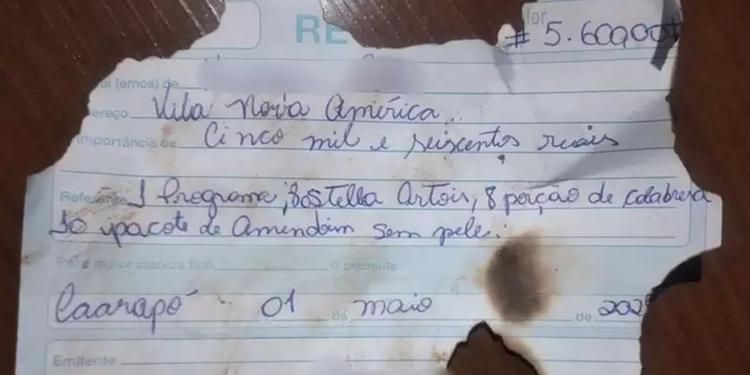 RE
lor
# 5.600,00 #
bi (emos) de
ereço Vila Nova América
mportância de Cinco mil e seiscentos reais
Referente 1 Programa, 80 Stella Artois, 8 porção de calabresa
10 pacote de Amendoim sem pele.
Para maior clareza firm o presente
Caarapó 01 de maio de 202
Emitente